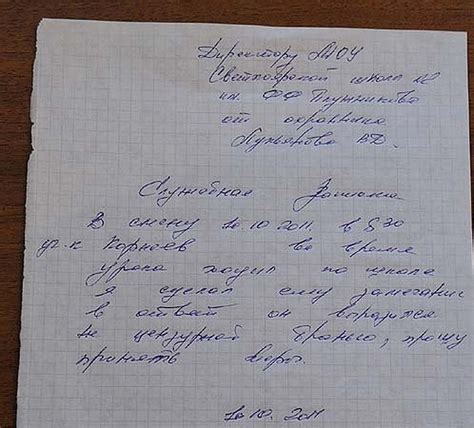 Директору МОУ
Светлоярской школы №2
им. Ф.Ф. Плужникова
от охранника
Лукьянова В.Д.
Служебная Записка
В смену 10.10.2011. в 8 30
уч-к Корнеев во время
урока ходил по школе
я сделал ему замечание
в ответ он
не цензурной бранью, прошу
принять меры.
10.10.2011